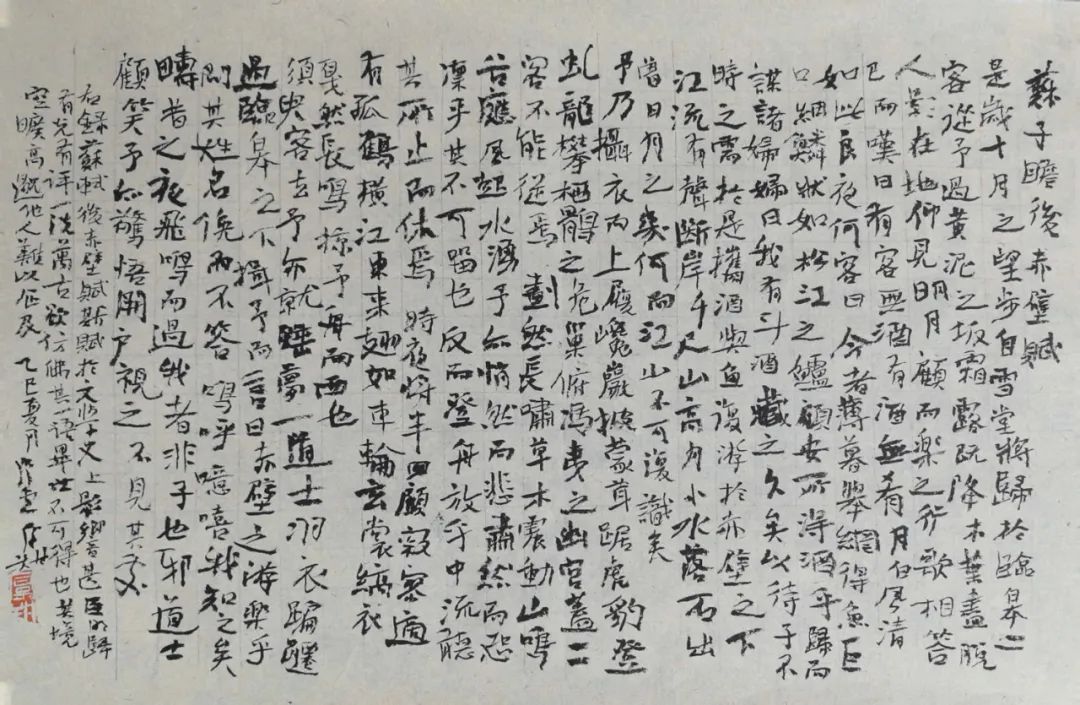 蘇子瞻後赤壁賦
是歲十月之望步自雪堂將歸於臨皋二
客從予過黃泥之坂霜露既降木葉盡脫
人影在地仰見明月顧而樂之行歌相答
已而嘆曰有客無酒有酒無肴月白風清
如此良夜何客曰今者薄暮舉網得魚巨
口細鱗狀如松江之鱸顧安所得酒乎歸而
謀諸婦婦曰我有斗酒藏之久矣以待子不
時之需於是攜酒與魚復游於赤壁之下
江流有聲斷岸千尺山高月小水落石出
曾日月之幾何而江山不可復識矣
予乃攝衣而上履巉巖披蒙茸踞虎豹登
虬龍攀栖鶻之危巢俯馮夷之幽宮蓋二
客不能從焉劃然長嘯草木震動山鳴
谷應風起水湧予亦悄然而悲肅然而恐
凜乎其不可留也反而登舟放乎中流聽
其所止而休焉時夜將半四顧寂寥適
有孤鶴橫江東來翅如車輪玄裳縞衣
戛然長鳴掠予舟而西也
須臾客去予亦就睡夢一道士羽衣蹁躚
過臨皋之下揖予而言曰赤壁之游樂乎
問其姓名俛而不答嗚呼噫嘻我知之矣
疇昔之夜飛鳴而過我者非子也耶道士
顧笑予亦驚悟開戶視之不見其處
右錄蘇軾後赤壁賦斯賦於文學史上影響甚巨明歸
有光有評一洗萬古欲仿佛其一語畢世不可得也其境
空曠高邈他人難以企及 乙巳夏月